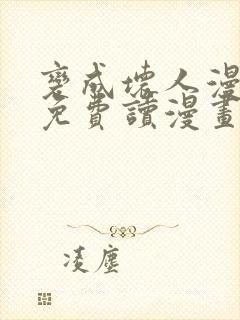 變成壞人漫
免費讀漫畫
凌塵